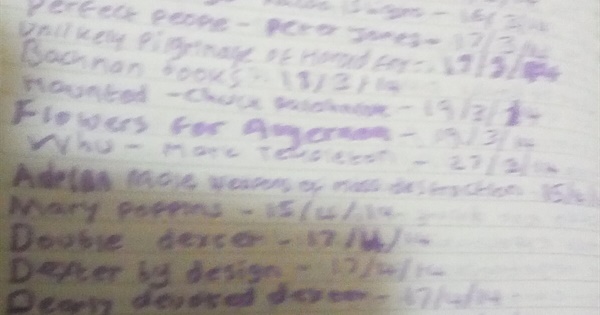 Perfect people - Peter James - 17/3/14
Unlikely Pilgrimage of Harold Fry - 18/3/14
Bachman books - 18/3/14
Haunted - Chuck - 19/3/14
Flowers for - 19/3/14
- Marc Templeton - 27/3/14
Adrian mole weapons of mass destruction 15/4/
Mary Poppins - 15/4/14
Double dexter - 17/4/14
Dexter by design - 17/4/14
Dearly devoted dexter - 17/4/14